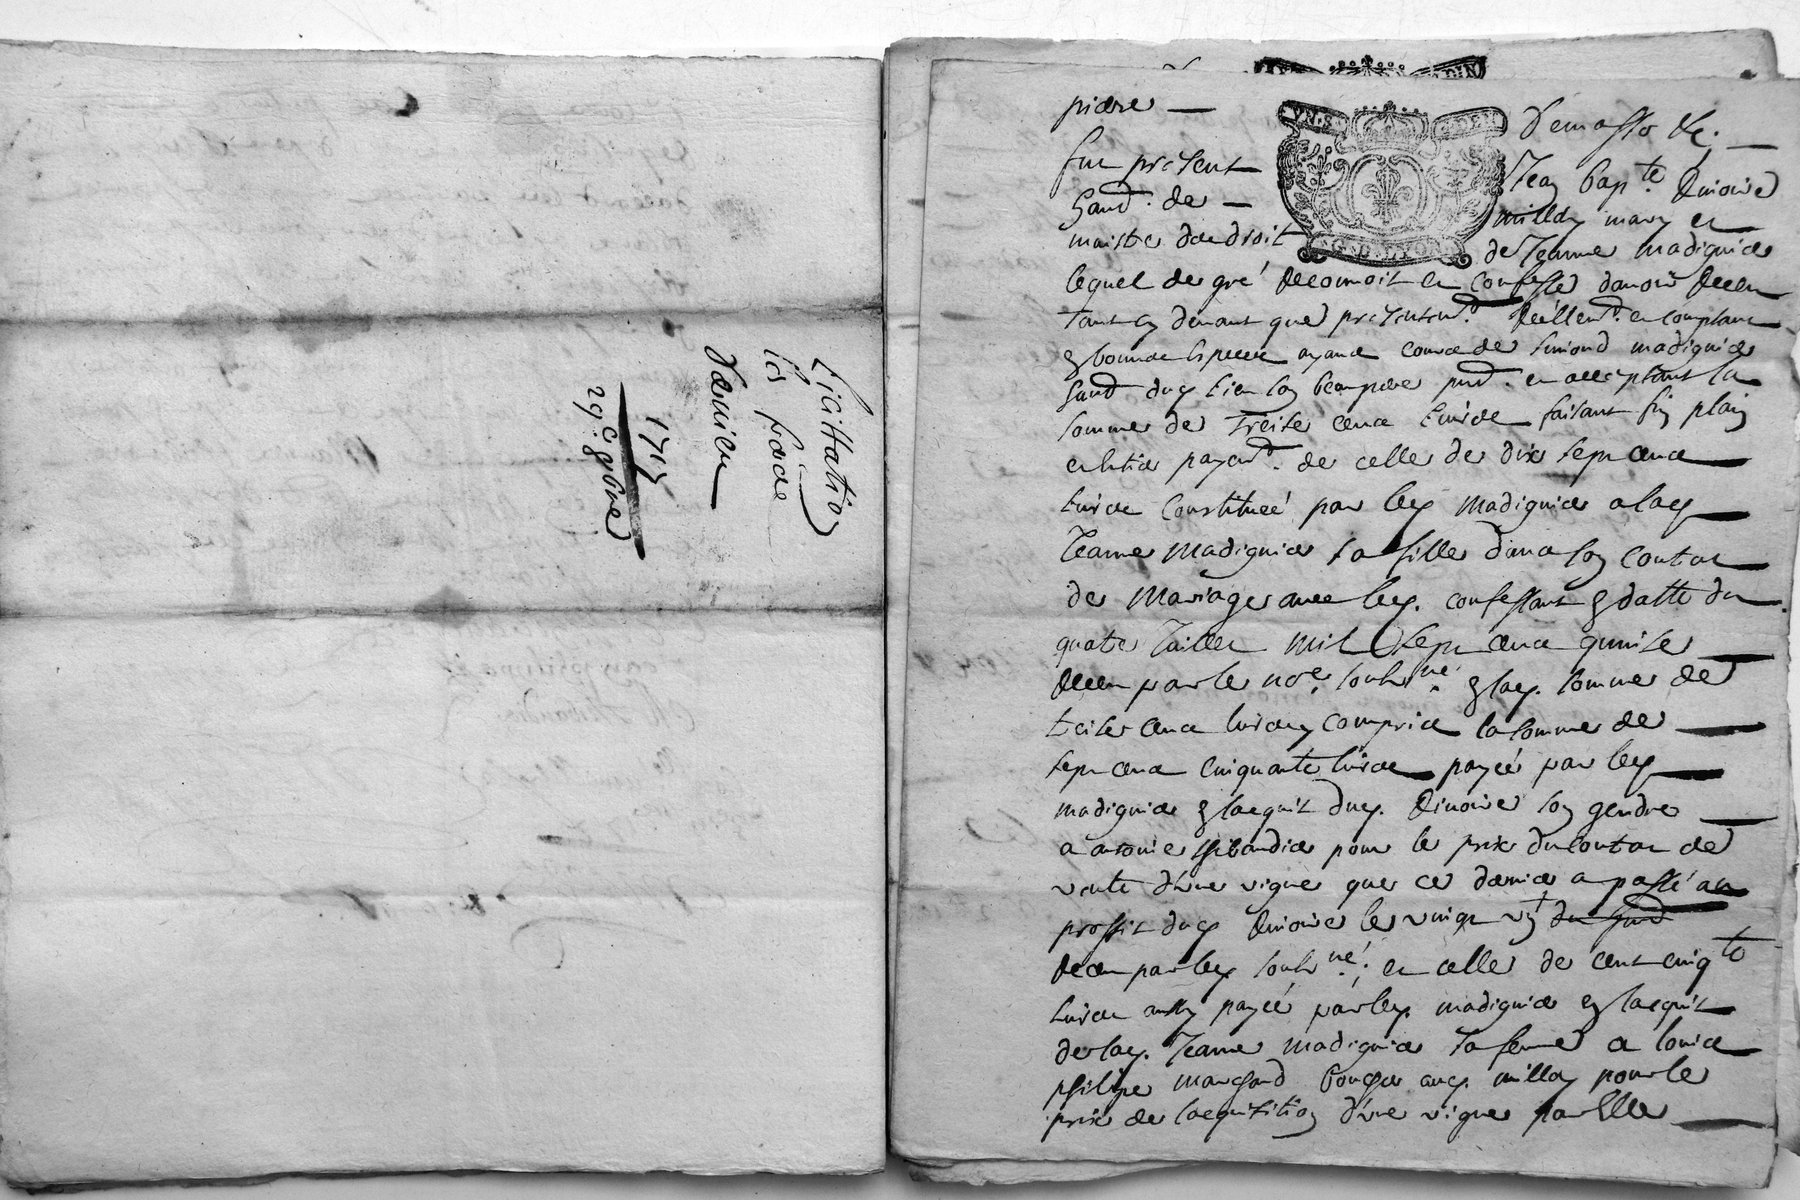 Licittation
les frères
Dervieu
1715
29e 9bre
pierre
Demasso &c.
fut présent
Jean Bapte Rivoire
hand. de
millery mary et
maistre de droit
de Jeanne madignier
G. D. LYON
lequel de gré reconnoit et confesse d'avoir receu
tant cy devant que présentemt. réellemt. et comptant
en bonne espece ayant cours de simond madignier
hand dud lieu son beaupere pnt. et acceptant la
somme de treise cent livres faisant fin plain
et entier payemt. de celle de dix sept cent
livres constituée par led madignier a lad
Jeanne madignier sa fille dans son contat
de Mariage avec led. confessant en datte du
quatre Juillet mil sept cent quinse
receu par le nore. soubsné. en lad. somme de
treise cent livres y compris la somme de
sept cent cinquante livres payée par led
madignier en l'acquit dud. Rivoire son gendre
a antoine thibaudier pour le prix du contat de
vente d'une vigne que ce dernier a passé au
proffit dud Rivoire le vingt
receu par led soubsné; et celle de cent cinqte
livres aussy payée par led. madignier en l'acquit
de lad. Jeanne madignier sa femme a louis
philipe marchand boucher aud. millery pour le
prix de l'acquisition d'une vigne par elle